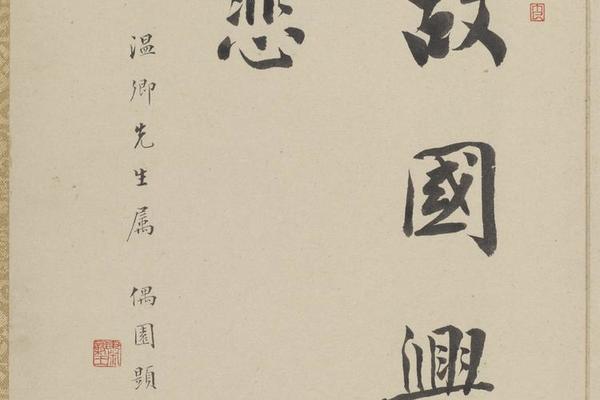 故國興
悲
温卿先生属 偶園顕